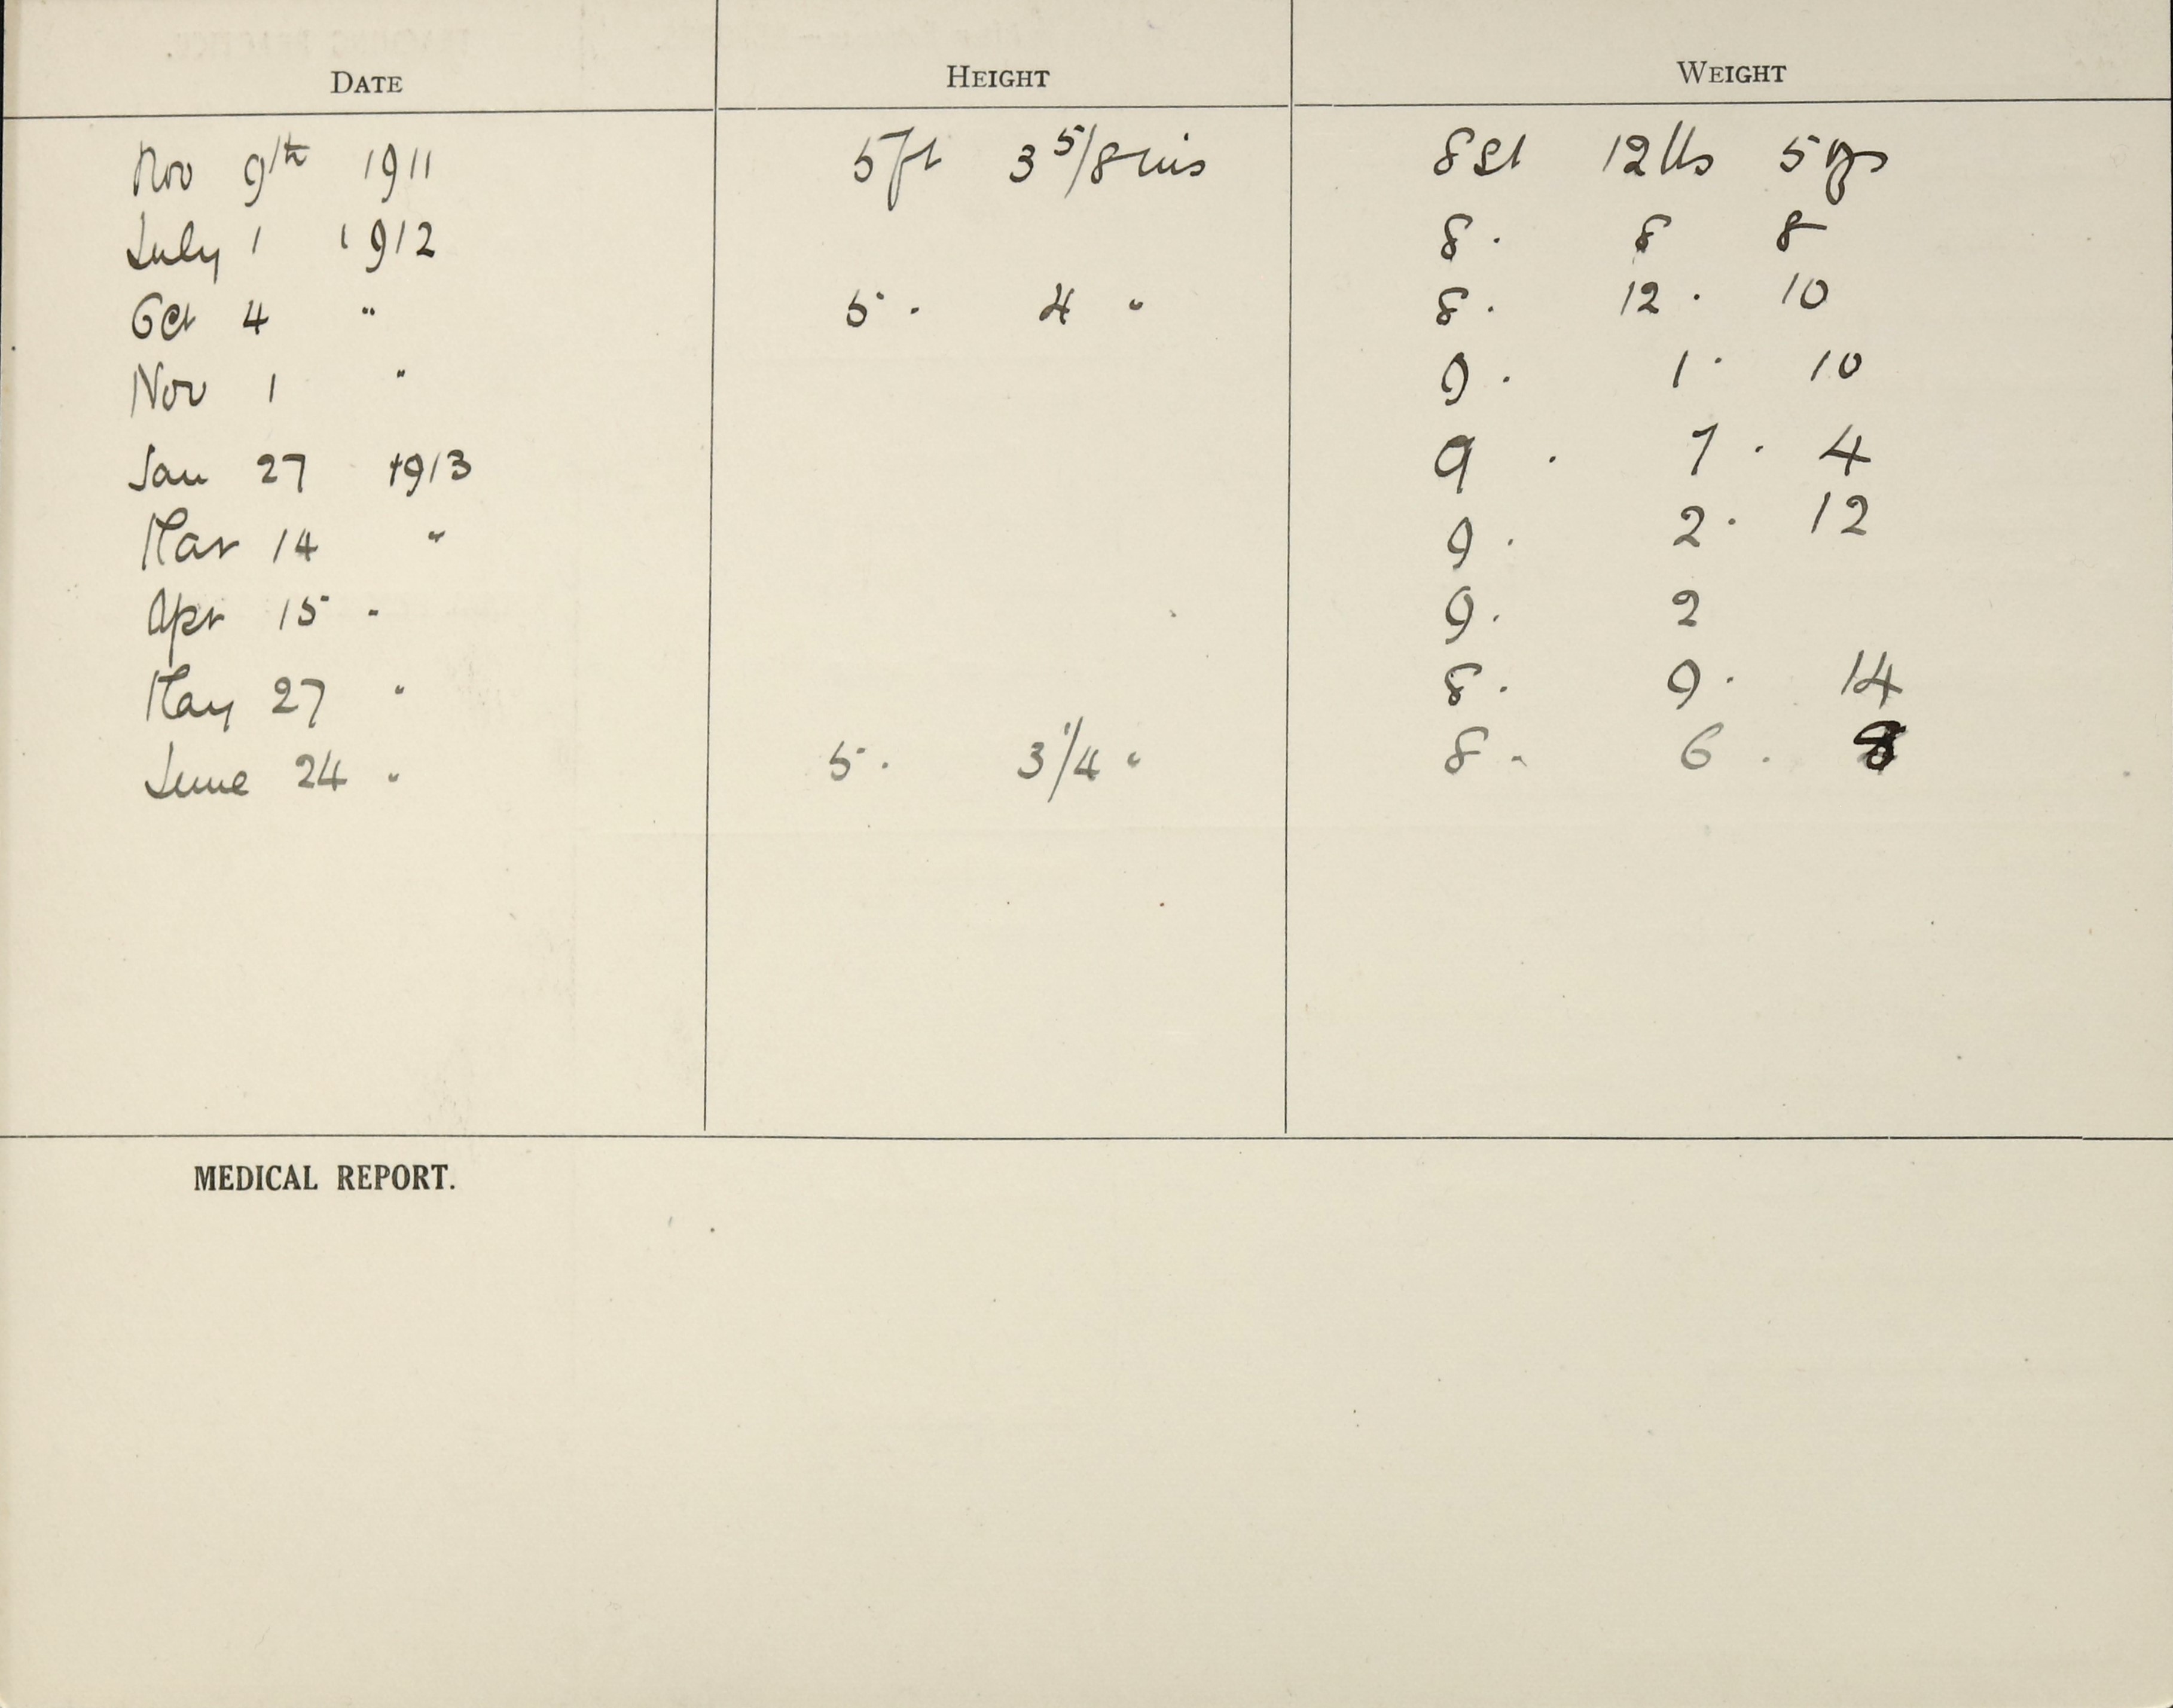 DATE HEIGHT WEIGHT
Nov 9th 1911 5ft 3 5/8 ins 8st 12lbs 5ozs
July 1 1912 8. 8 8
Oct 4 " 5. 4 " 8. 12. 10
Nov 1 " 9. 1. 10
Jan 27 1913 9. 7. 4
Mar 14 " 9. 2. 12
Apr 15 " 9. 2
May 27 " 8. 9. 14
June 24 " 5. 3 1/4 " 8. 6. 8
MEDICAL REPORT.